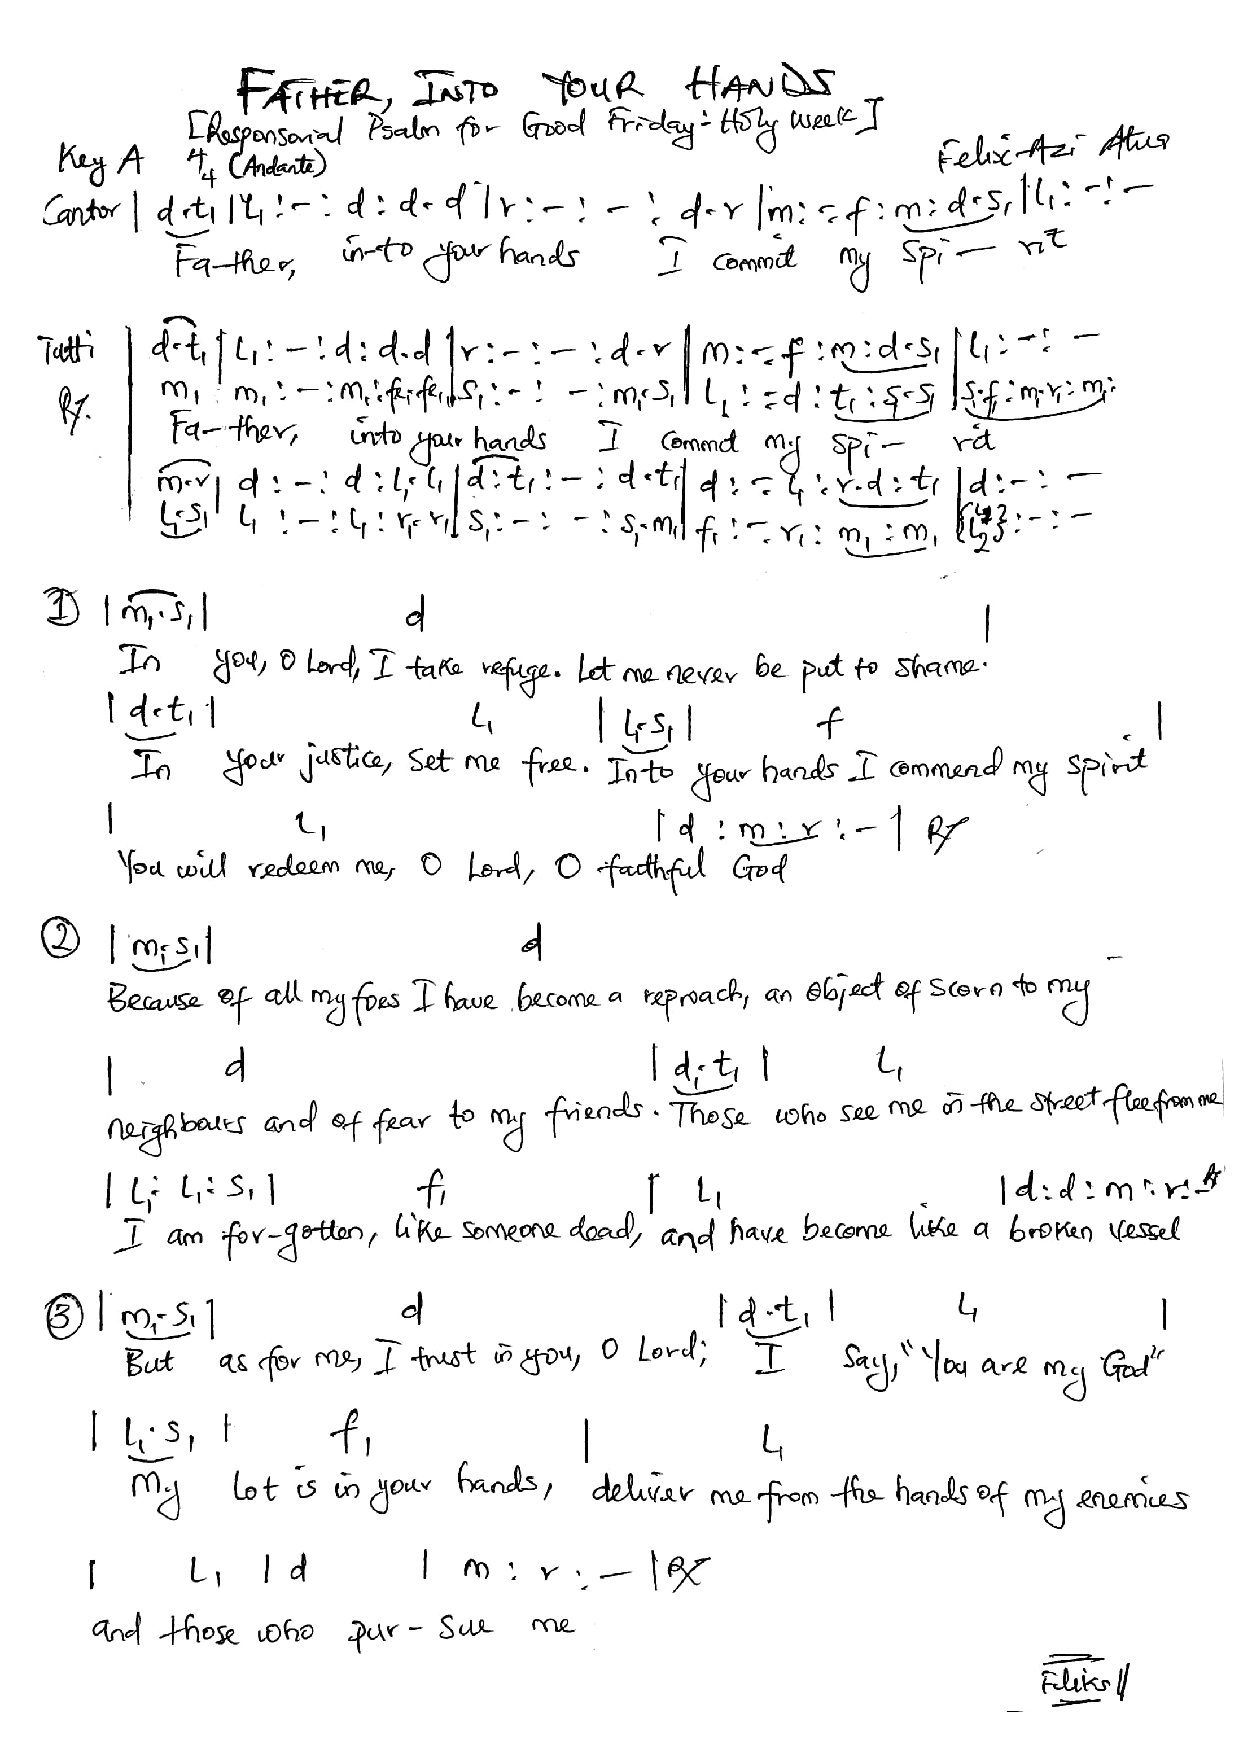 FATHER, INTO YOUR HANDS
[Responsorial Psalm for Good Friday: Holy Week]
Key A 4/4 (Andante) Felix-Azi Atus
Cantor | d.t₁ | l₁ : - : d : d.d | r : - : - : d.r | m : -.f : m : d.s₁ | l₁ : - : -
Fa-ther, in-to your hands I commit my spi - rit
Tutti | d.t₁ | l₁ : - : d : d.d | r : - : - : d.r | m : -.f : m : d.s₁ | l₁ : - : -
R/. m₁ : m₁ : - : m₁ : f₁.f₁ | s₁ : - : - : m₁.s₁ | l₁ : -.d : t₁ : s₁.s₁ | s₁.f₁ : m₁.r₁ : m₁
Fa-ther, into your hands I commit my spi - rit
m.r | d : - : d : l₁.l₁ | d : t₁ : - : d.t₁ | d : -.l₁ : r.d : t₁ | d : - : -
l₁.s₁ | l₁ : - : l₁ : r₁.r₁ | s₁ : - : - : s₁.m₁ | f₁ : -.r₁ : m₁ : m₁ | {l₁ l₂} : - : -
① | m₁.s₁ | d |
In you, O Lord, I take refuge. Let me never be put to shame.
| d.t₁ | l₁ | l₁.s₁ | f |
In your justice, set me free. Into your hands I commend my spirit
| l₁ | d : m : r : - | R/
You will redeem me, O Lord, O faithful God
② | m₁.s₁ | d
Because of all my foes I have become a reproach, an object of scorn to my
| d | d.t₁ | l₁
neighbours and of fear to my friends. Those who see me in the street flee from me
| l₁ : l₁ : s₁ | f₁ | l₁ | d : d : m : r : - R/
I am for-gotten, like someone dead, and have become like a broken vessel
③ | m₁.s₁ | d | d.t₁ | l₁ |
But as for me, I trust in you, O Lord; I say, "You are my God"
| l₁.s₁ | f₁ | l₁
My lot is in your hands, deliver me from the hands of my enemies
| l₁ | d | m : r : - | R/
and those who pur - sue me
Feliks //